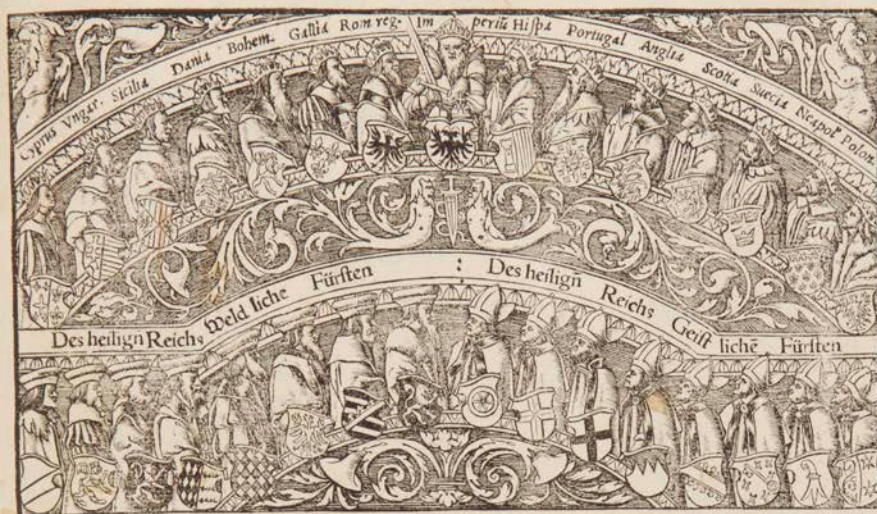 Cyprus Vngar. Sicilia Dania Bohem. Gallia Rom reg. Im periũ Hispa Portugal Anglia Scotia Suecia Neapol Polon
Des heilign Reichs Weld liche Fürsten : Des heiligñ Reichs Geist lichē Fürsten